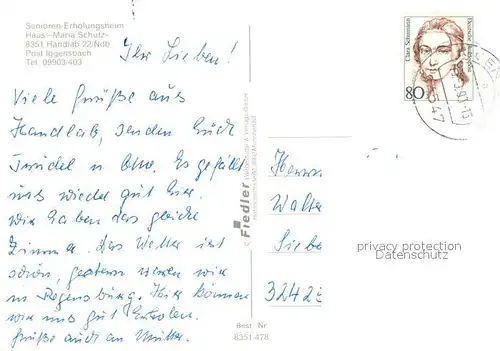 Senioren-Erholungsheim
Haus "Maria Schutz"
8351 Handlab 22/Ndb
Post Iggensbach
Tel. 09903/403
Ihr Lieben!
Viele Grüße aus
Handlab, senden Euch
Trudel u. Otto. Es gefällt
uns wieder gut hier.
Wir haben das gleiche
Zimmer. Das Wetter ist
schön, gestern waren wir
in Regensburg. Hier können
wir uns gut erholen.
Grüße auch an Mutter.
© Fiedler
Best Nr
8351-478
Clara Schumann
Deutsche Bundespost
80
Walter
Siebe
3242
privacy protection
Datenschutz